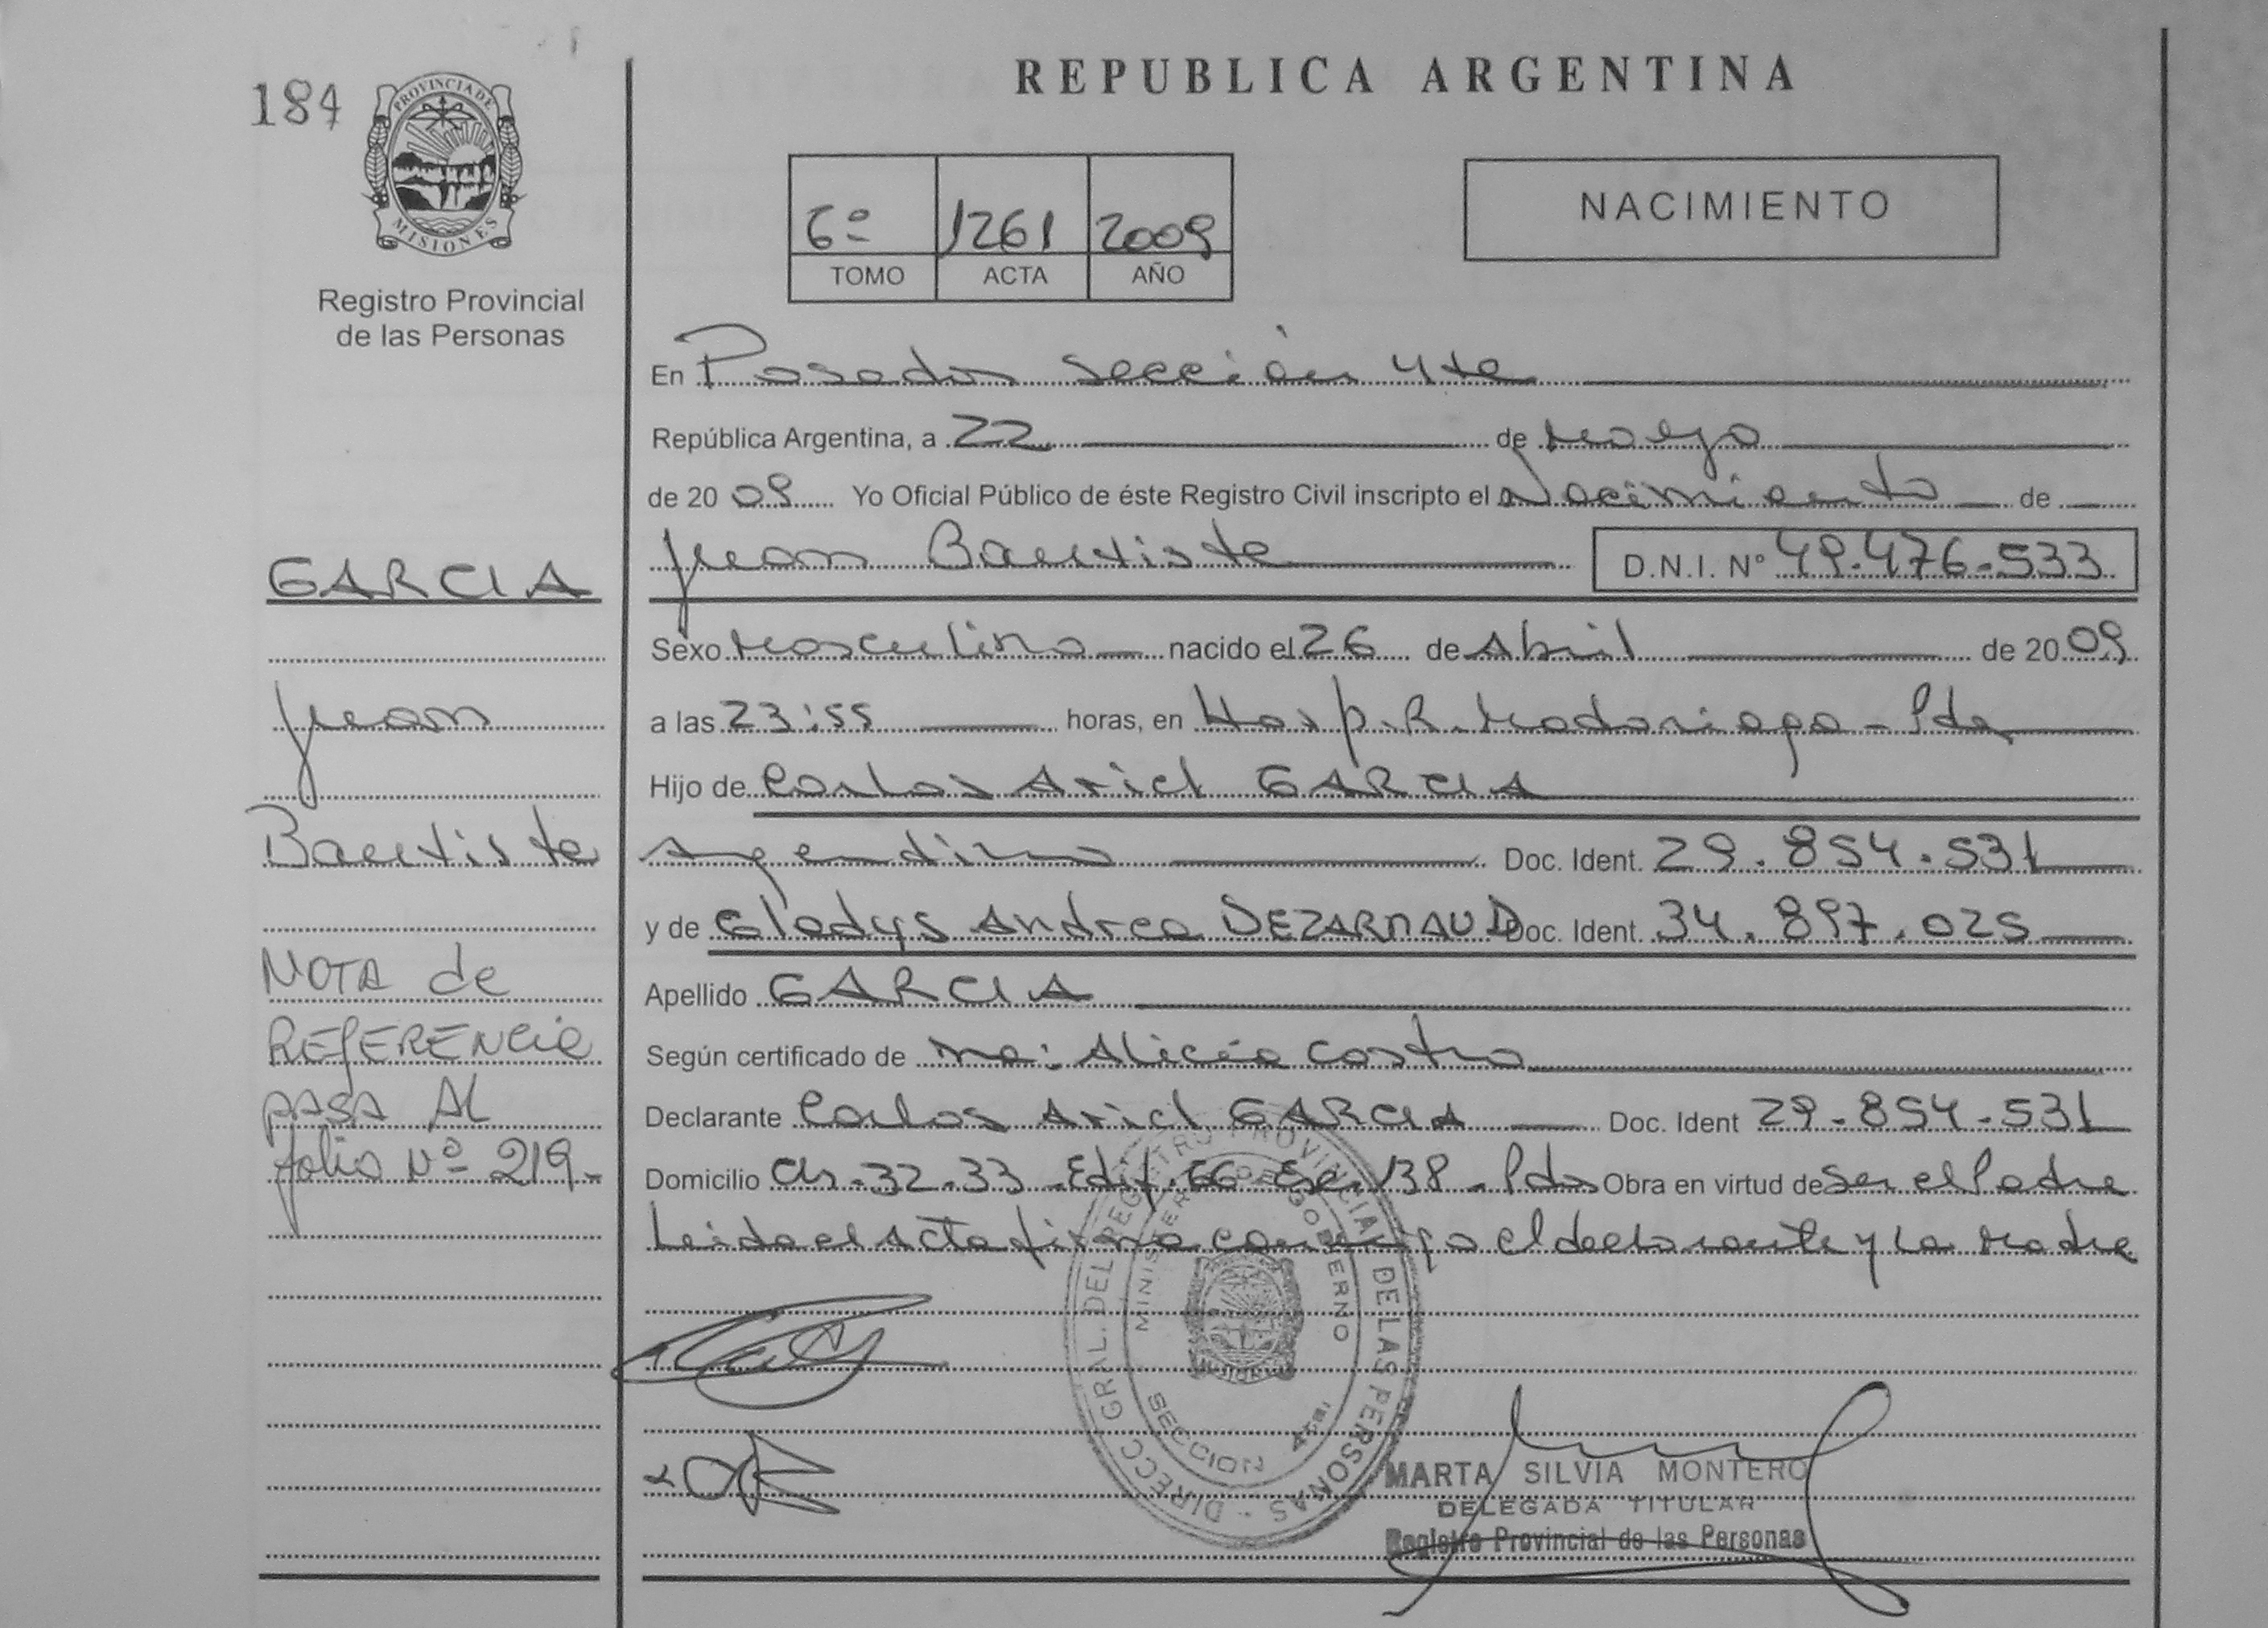 184
PROVINCIA DE
MISIONES
Registro Provincial
de las Personas
REPUBLICA ARGENTINA
6º 1261 2009
TOMO ACTA AÑO
NACIMIENTO
En Posadas sección 4ta
República Argentina, a 22 de Mayo
de 20 09 Yo Oficial Público de éste Registro Civil inscripto el Nacimiento de
Juan Bautista D.N.I. Nº 49.476.533
Sexo Masculino nacido el 26 de Abril de 20 09
a las 23:55 horas, en Hosp. R. Madariaga - Pdas
Hijo de Carlos Ariel GARCIA
Argentino Doc. Ident. 29.854.531
y de Gladys Andrea DEZARNAUD Doc. Ident. 34.897.025
Apellido GARCIA
Según certificado de Ma: Alicia Castro
Declarante Carlos Ariel GARCIA Doc. Ident 29.854.531
Domicilio Ch. 32.33 Edif. 66 Esc. 138 - Pdas Obra en virtud de Ser el Padre
Leida el Acta firma conmigo el declarante y La Madre
GARCIA
Juan
Bautista
NOTA de
REFERENCIA
PASA AL
folio Nº 219-
DIRECC. GRAL. DEL REGISTRO PROVINCIAL DE LAS PERSONAS
MINISTERIO DE GOBIERNO
MISIONES
SECCION 4ta.
MARTA SILVIA MONTERO
DELEGADA TITULAR
Registro Provincial de las Personas